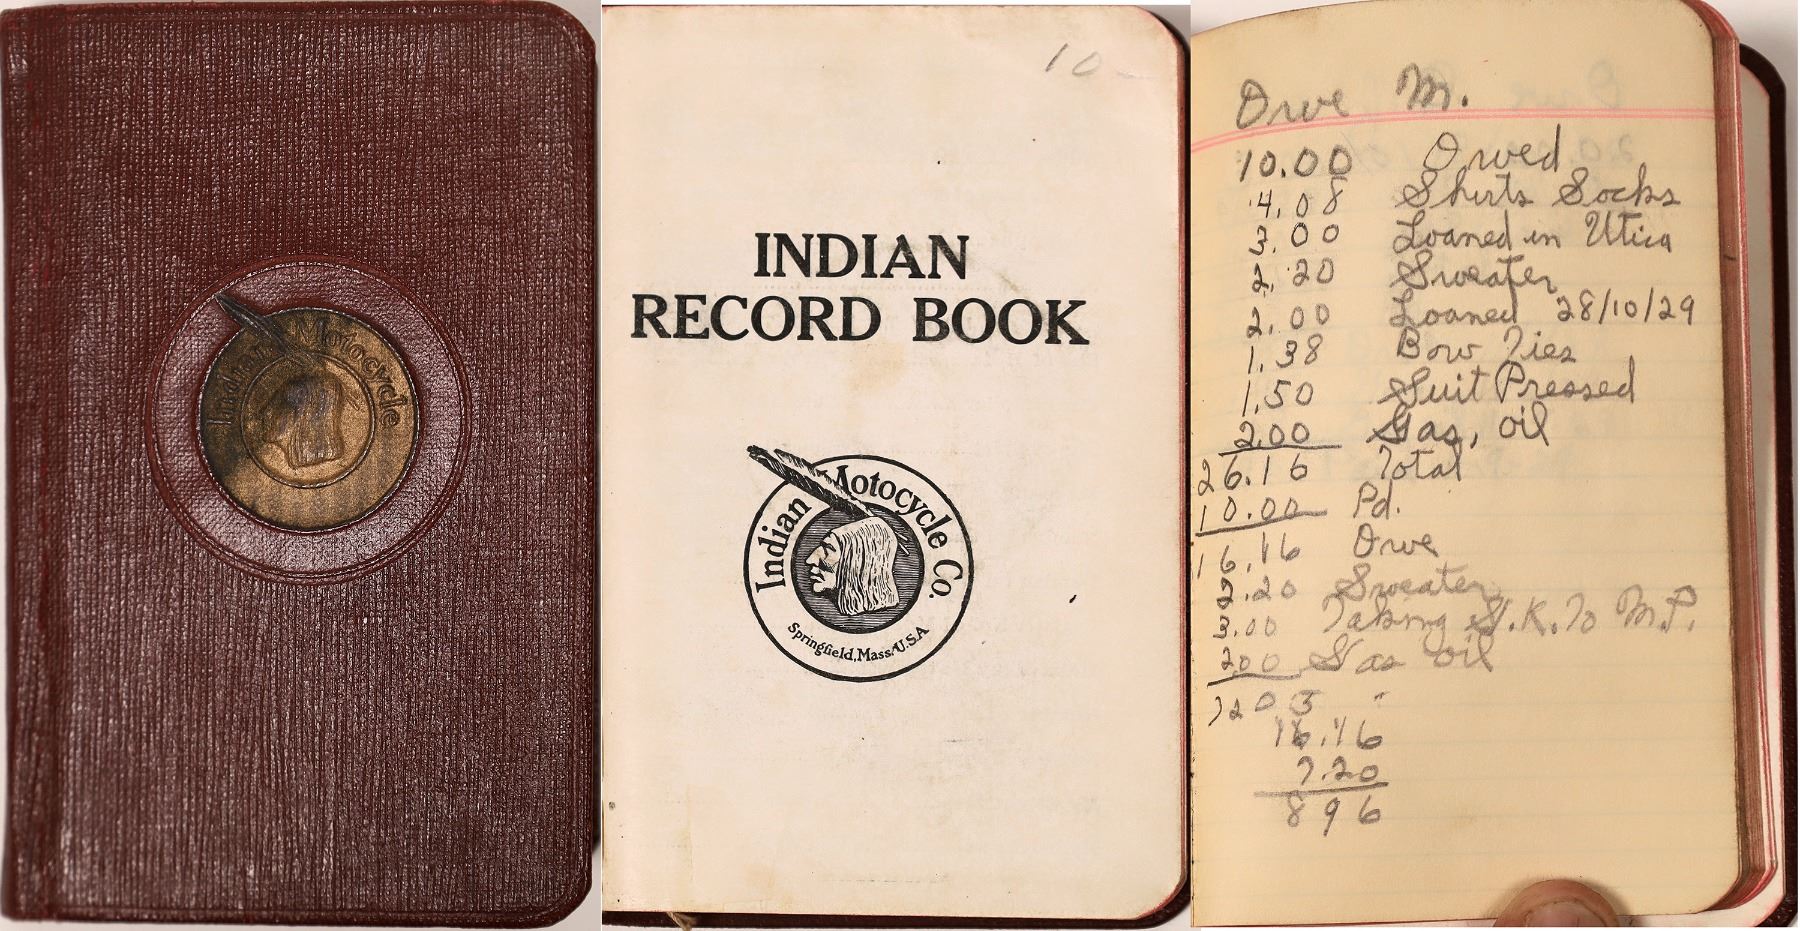 Indian Motocycle
10-
INDIAN
RECORD BOOK
Indian Motocycle Co.
Springfield, Mass. U.S.A
Owe M.
10.00 Owed
4.08 Shirts Socks
3.00 Loaned in Utica
2.20 Sweater
2.00 Loaned 28/10/29
1.38 Bow Ties
1.50 Suit Pressed
2.00 Gas, oil
26.16 Total
10.00 Pd.
16.16 Owe
2.20 Sweater
3.00 Taking S.K. To M.P.
2.00 Gas oil
16.16
7.20
896